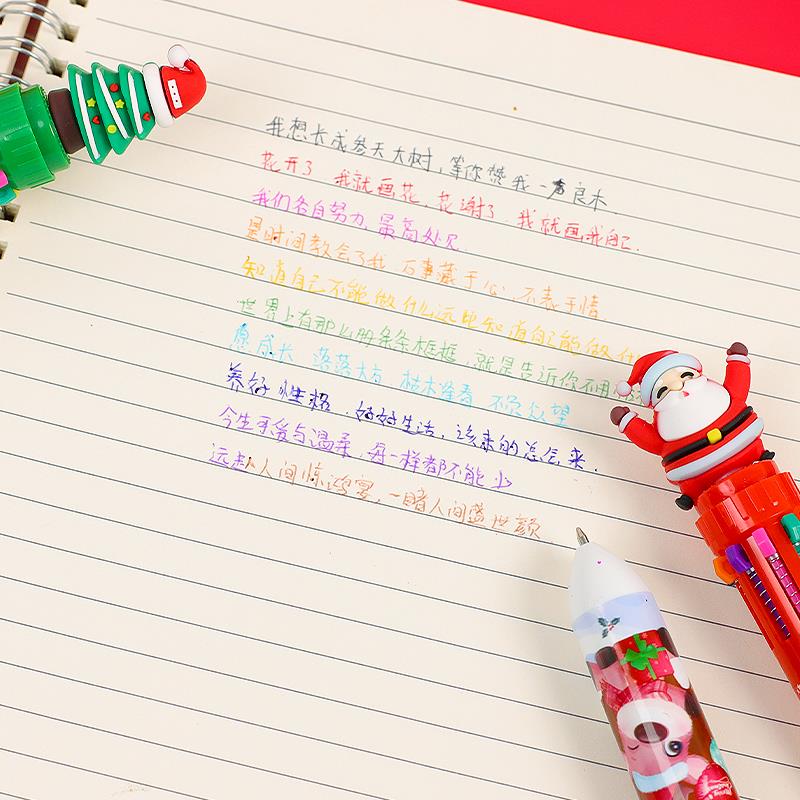 我想长成参天大树，等你赞我一声良木.
花开了 我就画花, 花谢了 我就画我自己.
我们各自努力, 最高处见
是时间教会了我 万事藏于心, 不表于情.
知道自己不能做什么远比知道自己能做什
世界上有那么那条条框框, 就是告诉你不用
愿成长 落落大方 枯木逢春 不负众望
养好性格, 好好生活, 该来的总会来.
今生手发与温柔, 每一样都不能少
远赴人间惊鸿宴, 一睹人间盛世颜